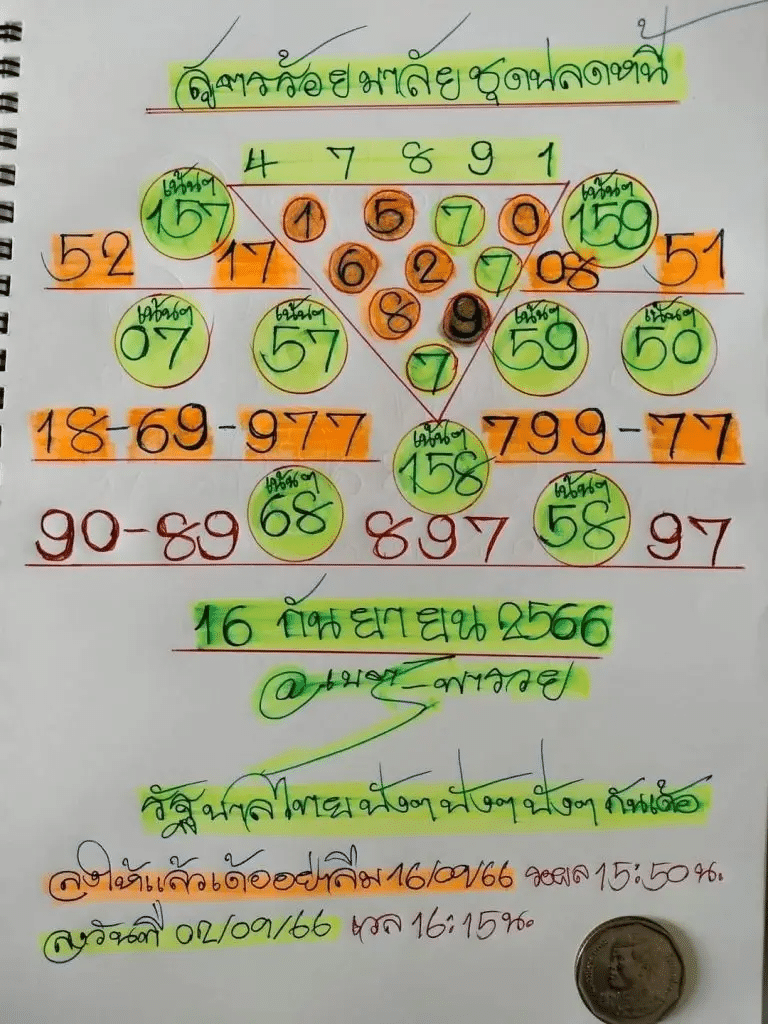 สูตรร้อยมาลัยชุดปลดหนี้
4 7 8 9 1
เน้นๆ เน้นๆ
157 1 5 7 0 159
52 17 6 2 7 08 51
เน้นๆ เน้นๆ 8 9 เน้นๆ เน้นๆ
07 57 7 59 50
18-69-977 เน้นๆ 799-77
158
เน้นๆ เน้นๆ
90-89 68 897 58 97
16 กันยายน 2566
@ พารวย
รัฐบาลไทย ปังๆ ปังๆ ปังๆ กันเด้อ
ลงให้แล้วเด้ออย่าลืม 16/09/66 รอผล 15:50 น.
ลงวันที่ 02/09/66 เวลา 16:15 น.